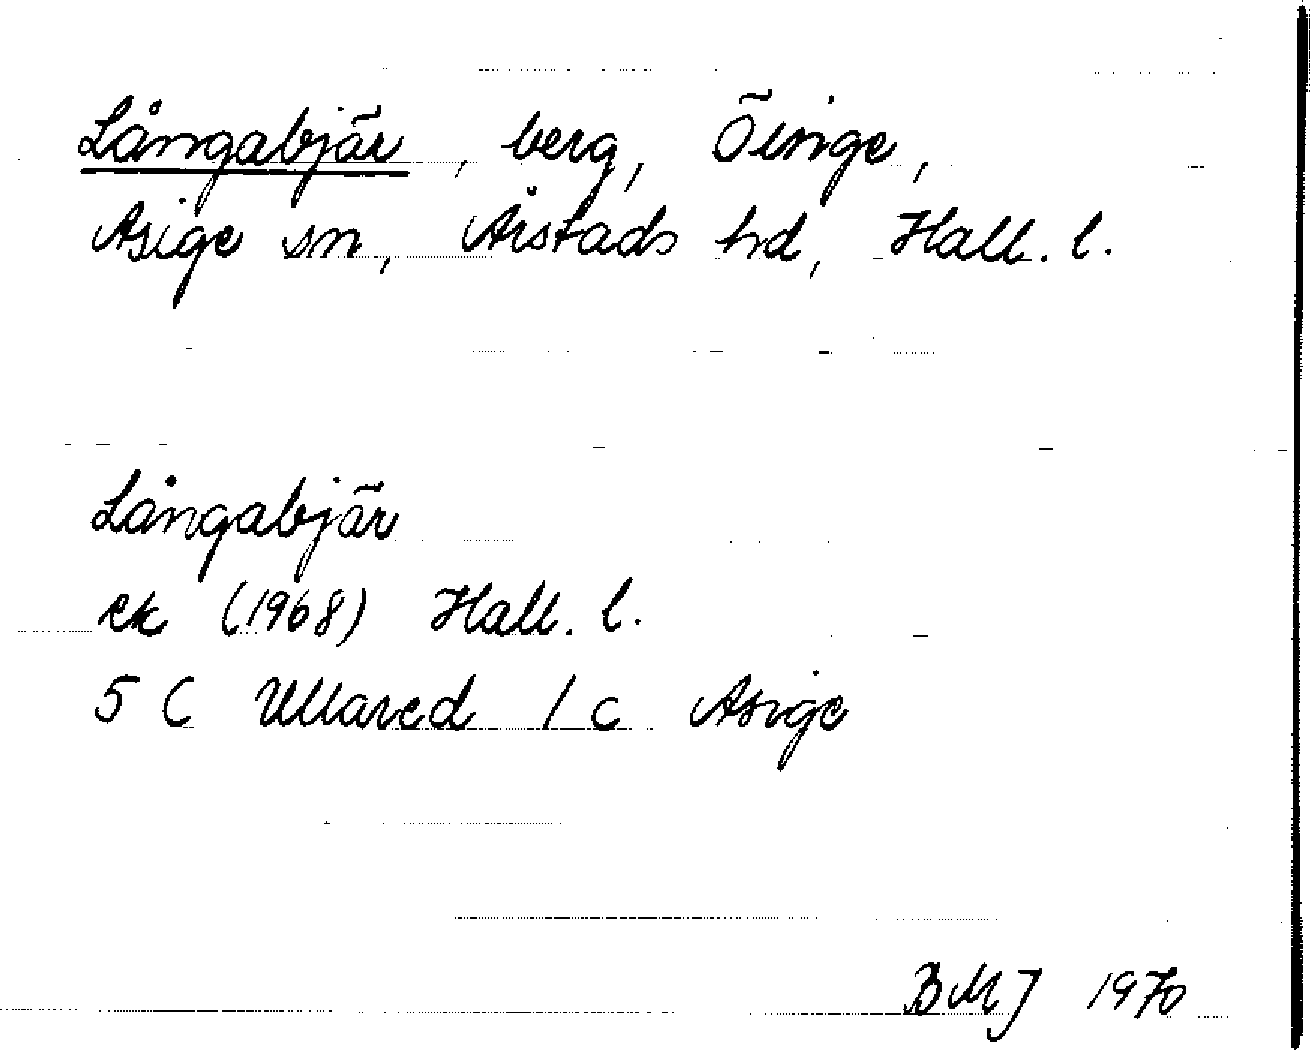 Långabjär, berg, Öinge,
Asige sn, Årstads hd, Hall. l.
Långabjär
ek (1968) Hall. l.
5 C Ullared 1 c Asige
BMJ 1970